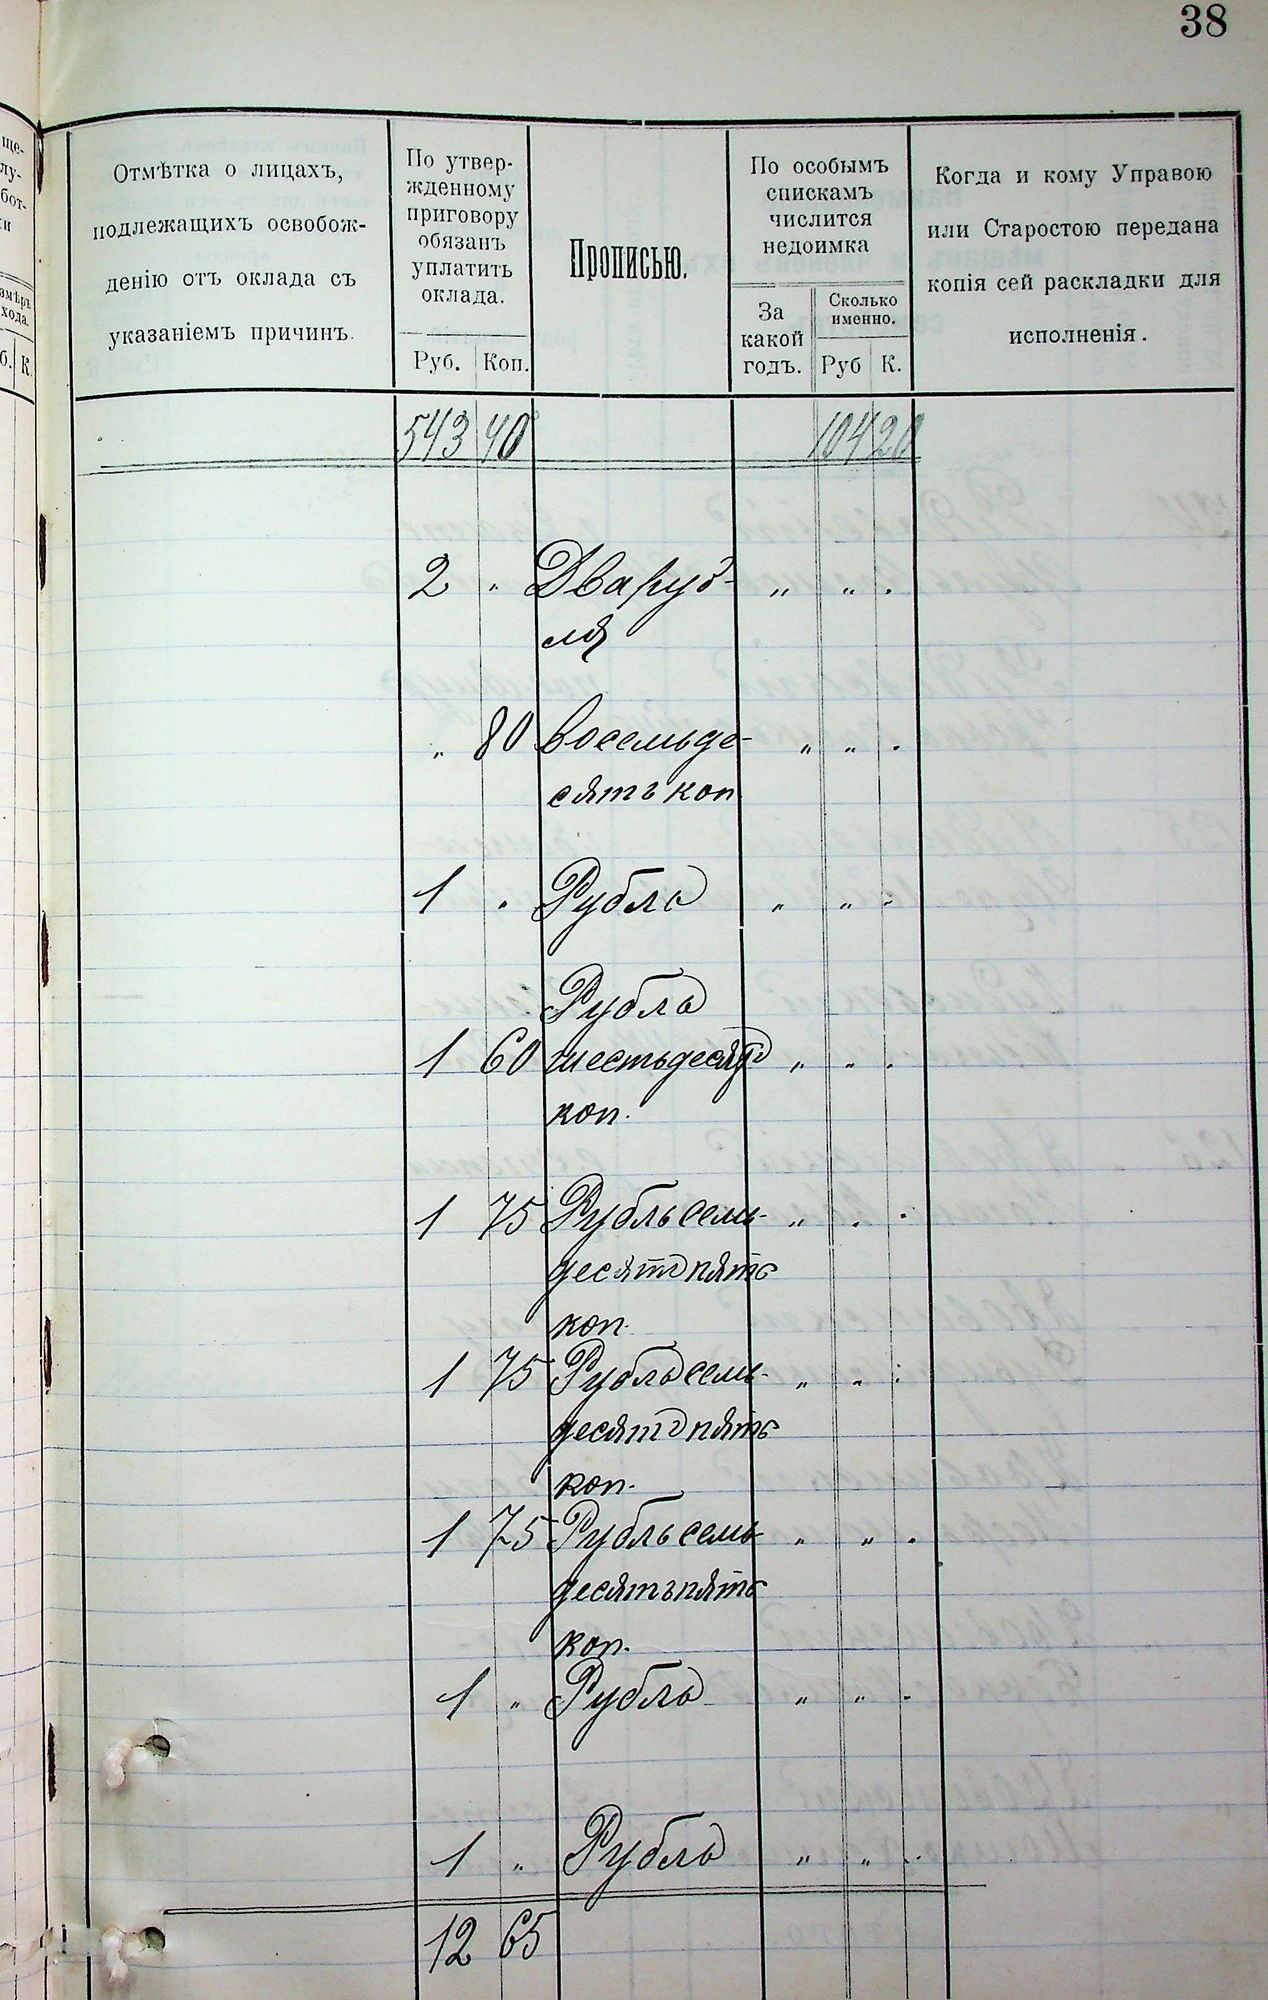 38
Отмѣтка о лицахъ,
подлежащихъ освобож-
денію отъ оклада съ
указаніемъ причинъ.
По утвер-
жденному
приговору
обязанъ
уплатить
оклада.
Руб. Коп.
Прописью.
По особымъ
спискамъ
числится
недоимка
За
какой
годъ.
Сколько
именно.
Руб К.
Когда и кому Управою
или Старостою передана
копія сей раскладки для
исполненія.
ще-
лу-
бот-
змѣръ
хода.
б. К.
543 40 104 20
2 " Два руб- " " "
ля
" 80 Восемьде- " " "
сятъ коп
1 " Рубль " " "
Рубль
1 60 шестьдесятъ " " "
коп.
1 75 Рубль семь- " " "
десятъ пять
коп.
1 75 Рубль семь- " " "
десятъ пять
коп.
1 75 Рубль семь- " " "
десятъ пять
коп.
1 " Рубль " " "
1 " Рубль " " "
12 65